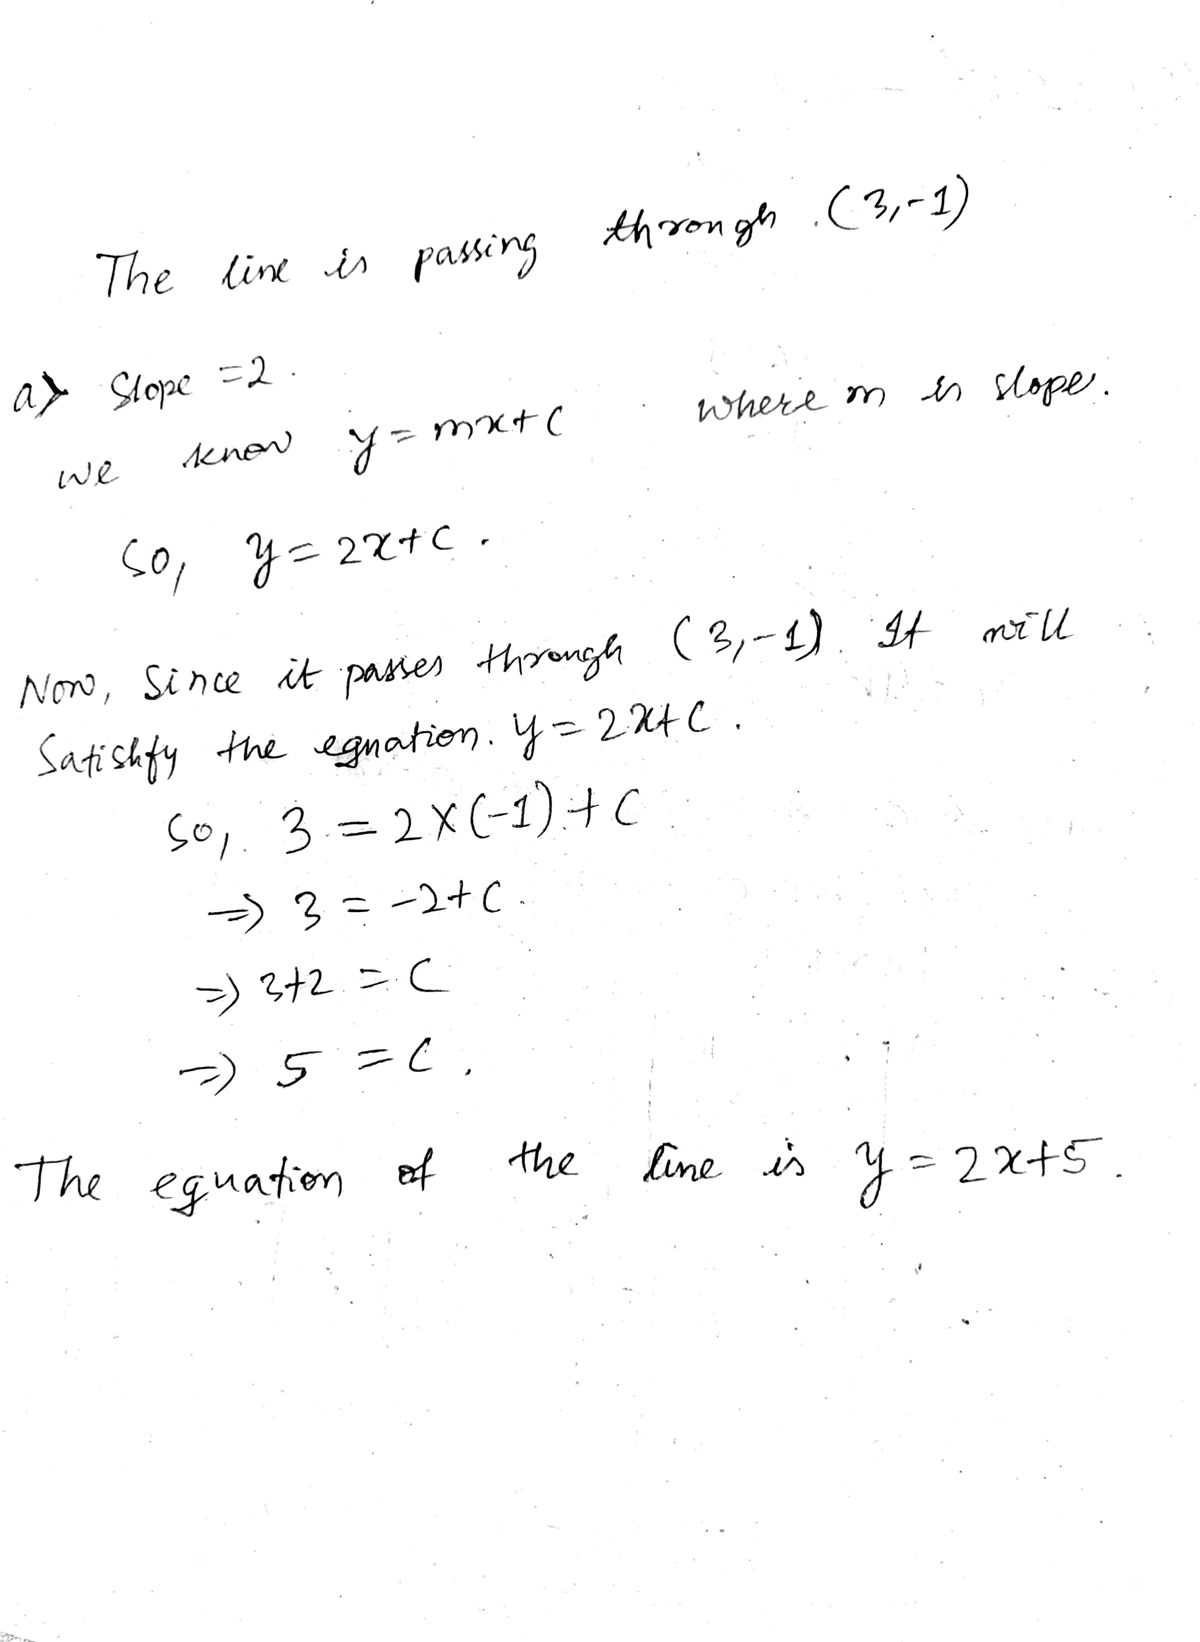 The line is passing through (3,-1)
a) Slope = 2.
We know y = mx + c where m is slope.
So, y = 2x + c.
Now, Since it passes through (3,-1). It will
Satishfy the equation. y = 2x + c.
So, 3 = 2 × (-1) + c
=> 3 = -2 + c.
=> 3+2 = c
=> 5 = c.
The equation of the line is y = 2x+5.